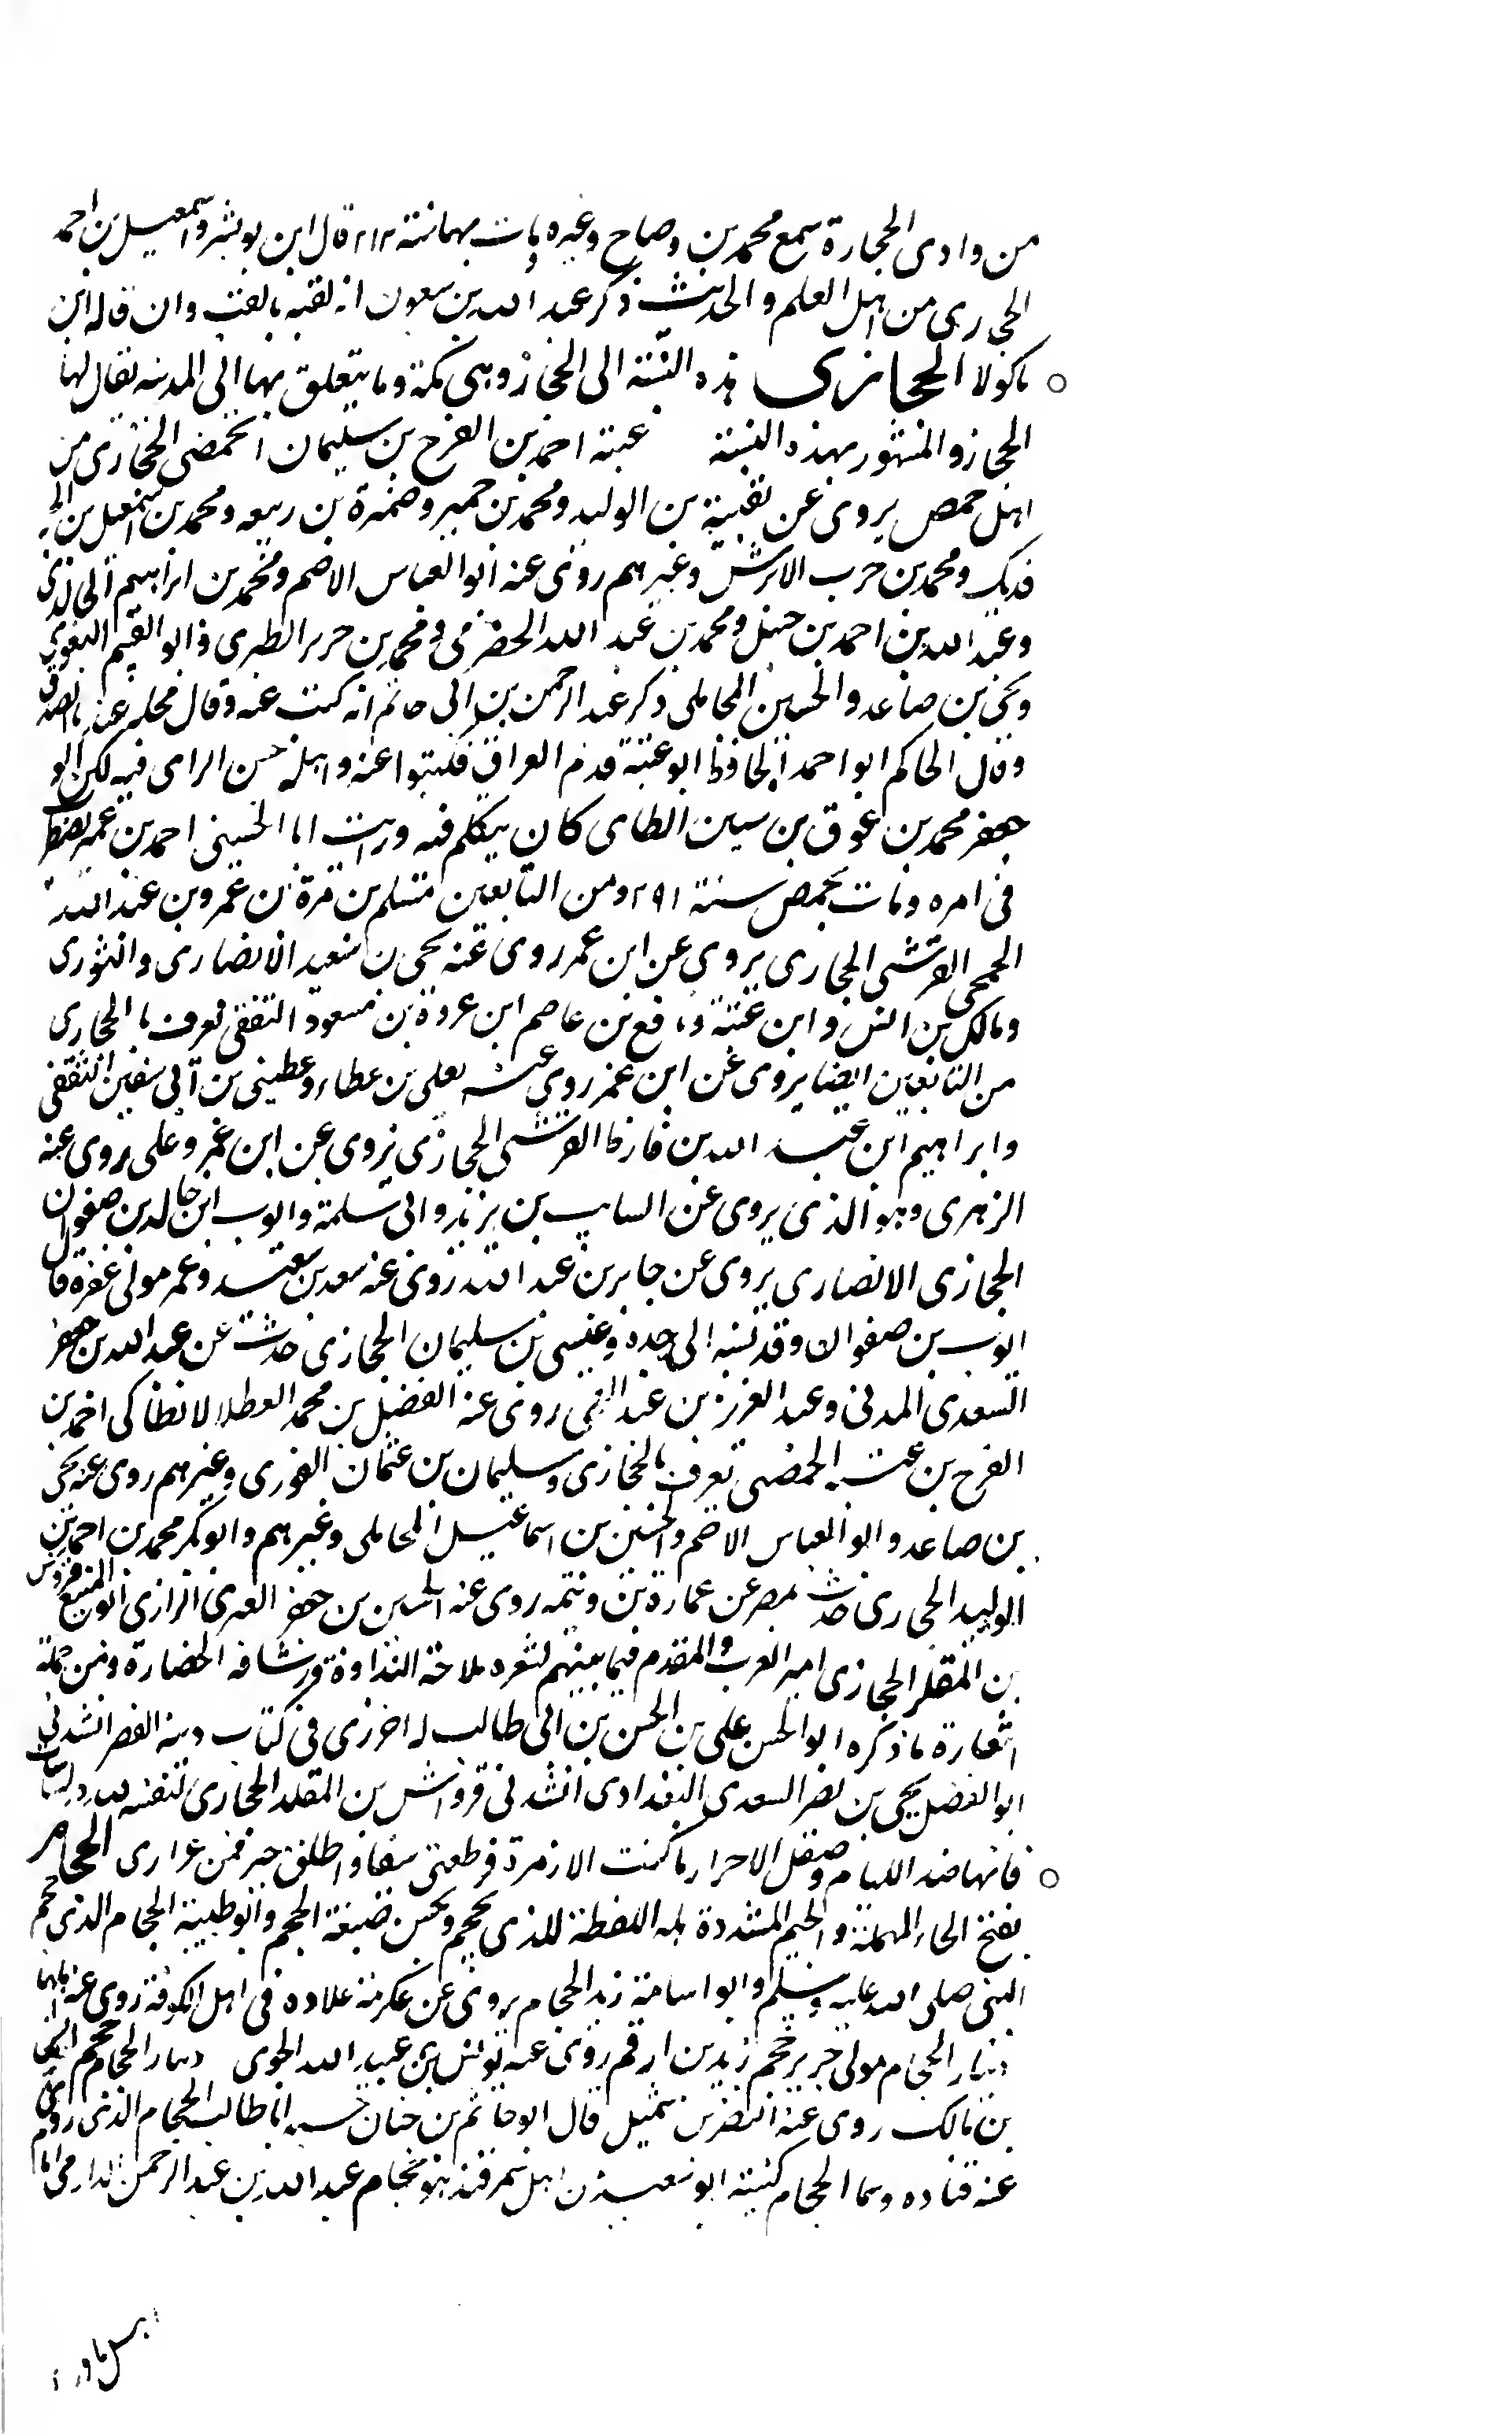 من وادى الحجارة سمع محمد بن وضاح وغيره ومات بها سنة ٣١٢ قال ابن يونس واسمعيل بن احمد
الحجارى من اهل العلم والحديث ذكر عبد الله بن سعون انه لقيه بالغب وان قاله ابن
ماكولا الحجازى هذه النسبة الى الحجاز وهى مكة وما يتعلق بها الى المدينه يقال لها
الحجاز والمشهور بهذه النسبة عتبة احمد بن الفرج بن سليمان الحمصى الحجازى من
اهل حمص يروى عن بقية بن الوليد ومحمد بن حمير وضمرة بن ربيعه ومحمد بن اسمعيل بن ابى
فديك ومحمد بن حرب الابرش وغيرهم روى عنه ابو العباس الاصم ومحمد بن ابراهيم
وعبد الله بن احمد بن حنبل ومحمد بن عبد الله الحضرمى ومحمد بن جرير الطبرى وابو القسم البغوى
ويحيى بن صاعد والحسين المحاملى ذكر عبد الرحمن بن ابى حاتم انه كتب عنه وقال محله عندنا الصدق
وقال الحاكم ابو احمد الحافظ ابو عتبة قدم العراق فكتبوا عنه واهله حسن الراى فيه لكن ابو
جعفر محمد بن عوف بن سفين الطاى كان يتكلم فيه ورايت ابا الحسين احمد بن عمير يضعف
فى امره ومات بحمص سنة ٢٩١ ومن التابعين مسلم بن مرة بن عمرو بن عبد الله
الجمحى القرشى الحجازى يروى عن ابن عمر روى عنه يحيى بن سعيد الانصارى والثورى
ومالك بن انس وابن عتبة ونافع بن عاصم ابن عروة بن مسعود الثقفى يعرف بالحجازى
من التابعين ايضا يروى عن ابن عمر روى عنه يعلى بن عطاء وعطيف بن ابى سفين الثقفى
وابراهيم ابن عبد الله بن قارظ القرشى الحجازى يروى عن ابن عمر وعلى روى عنه
الزهرى وهو الذى يروى عن السايب بن يزيد وابى سلمة وايوب ابن خالد بن صفوان
الحجازى الانصارى يروى عن جابر بن عبد الله روى عنه سعد بن سعيد وعمر مولى غفرة قال
ايوب بن صفوان وقد نسبه الى جده وعيسى بن سليمان الحجازى حدث عن عبد الله بن جعفر
السعدى المدنى وعبد العزيز بن عبد العمى روى عنه الفضل بن محمد العطار الانطاكى احمد بن
الفرج بن عتبه الحمصى يعرف بالحجازى وسليمان بن عثمان الفوزى وغيرهم روى عنه يحيى
بن صاعد وابو العباس الاصم والحسين بن اسماعيل المحاملى وغيرهم وابو بكر محمد بن احمد بن
الوليد الحجازى حدث بمصر عن عمارة بن وثيمه روى عنه الحسين بن جعفر العبدى الرازى ابو المنيع قرواش
بن المقلد الحجازى امير العرب والمقدم فيما بينهم لشعره ملاحة البداوة ورشاقة الحضارة ومن جملة
اشعارة ما ذكره ابو الحسن على بن الحسن بن ابى طالب الباخرزى فى كتاب دمية القصر انشدنى
ابو الفضل يحيى بن نصر السعدى البغدادى انشدنى قرواش بن المقلد الحجازى لنفسه لله در النايبات
فانها صدا اللئام وصيقل الاحرار ما كنت الا زبرة فطبعتنى سيفا واطلق حرفهن غرارى الحجام
بفتح الحاء المهملة والجيم المشددة هذه اللفظة للذى يحجم ويحسن صنعة الحجم وابو طيبة الحجام الذى حجم
النبى صلى الله عليه وسلم وابو اسامة زيد الحجام يروى عن عكرمة عداده فى اهل الكوفة روى عنه
دينار الحجام مولى جرير حجم زيد بن ارقم روى عنه يونس بن عبد الله الجرمى دينار الحجام حجم انس
بن مالك روى عنه النضر بن شميل قال ابو حاتم بن حبان حسبه ابا طالب الحجام الذى روى
عنه قتاده وسما الحجام كنيته ابو سعيد من اهل سمرقند هو حجام عبد الله بن عبد الرحمن الدارمى